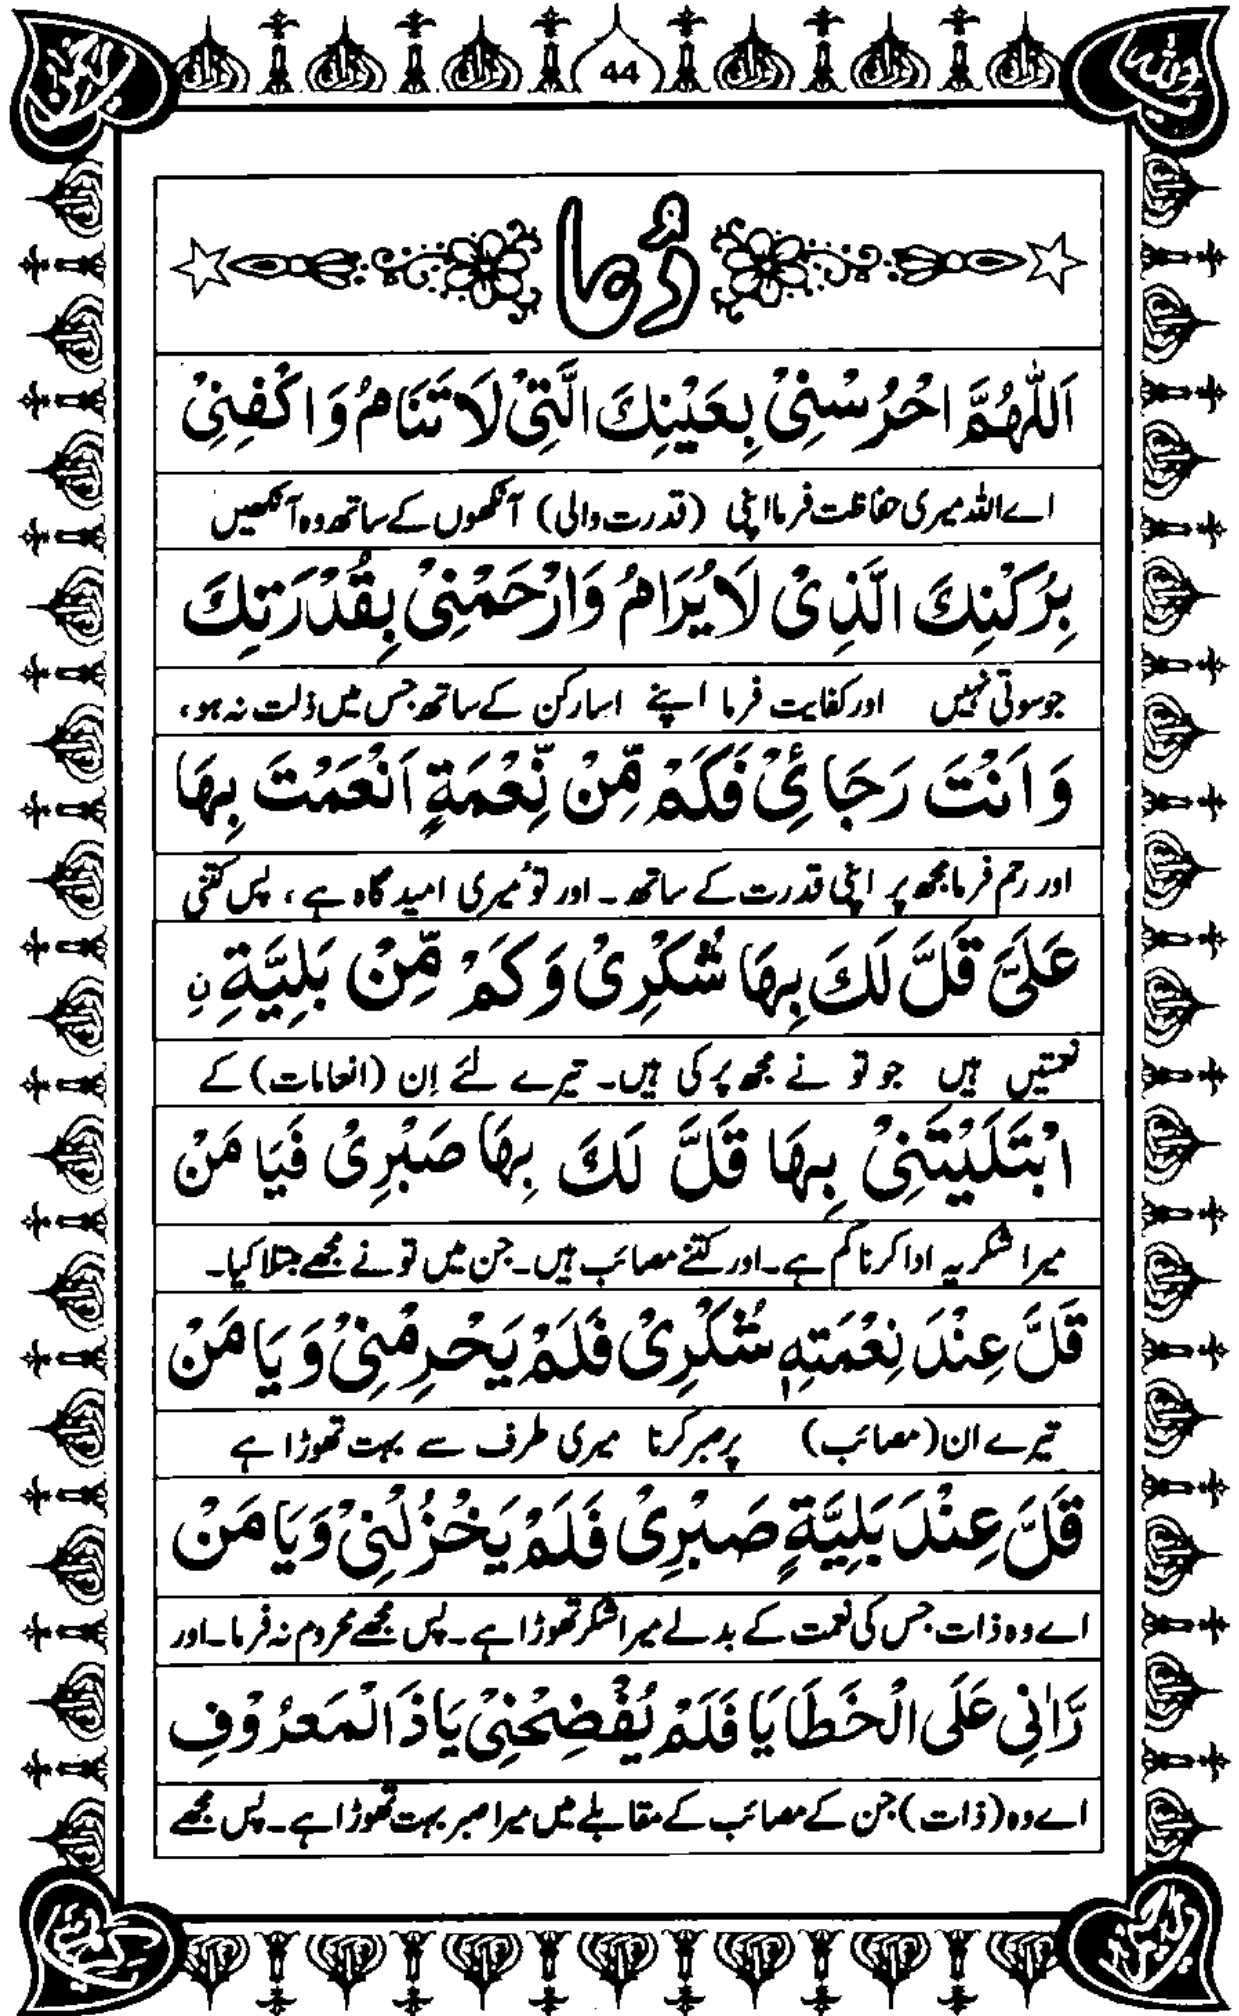 44
دُعا
اَللّٰهُمَّ احْرُسْنِىْ بِعَيْنِكَ الَّتِىْ لَا تَنَامُ وَاكْفِنِىْ
اے اللہ میری حفاظت فرما اپنی (قدرت والی) آنکھوں کے ساتھ وہ آنکھیں
بِرُكْنِكَ الَّذِىْ لَا يُرَامُ وَارْحَمْنِىْ بِقُدْرَتِكَ
جو سوتی نہیں اور کفایت فرما اپنے اسارکن کے ساتھ جس میں ذلت نہ ہو،
وَاَنْتَ رَجَائِىْ فَكَمْ مِّنْ نِّعْمَةٍ اَنْعَمْتَ بِهَا
اور رحم فرما مجھ پر اپنی قدرت کے ساتھ ۔ اور تُو میری امید گاہ ہے ، پس کتنی
عَلَىَّ قَلَّ لَكَ بِهَا شُكْرِىْ وَكَمْ مِّنْ بَلِيَّةِ نِ
نعمتیں ہیں جو تو نے مجھ پر کی ہیں۔ تیرے لئے اِن (انعامات) کے
ابْتَلَيْتَنِىْ بِهَا قَلَّ لَكَ بِهَا صَبْرِىْ فَيَا مَنْ
میرا شکریہ ادا کرنا کم ہے ۔ اور کتنے مصائب ہیں ۔ جن میں تو نے مجھے مبتلا کیا۔
قَلَّ عِنْدَ نِعْمَتِهٖ شُكْرِىْ فَلَمْ يَحْرِمْنِىْ وَيَا مَنْ
تیرے ان (مصائب) پر صبر کرنا میری طرف سے بہت تھوڑا ہے
قَلَّ عِنْدَ بَلِيَّةٍ صَبْرِىْ فَلَمْ يَخْزُلْنِىْ وَيَا مَنْ
اے وہ ذات جس کی نعمت کے بدلے میرا شکر تھوڑا ہے ۔ پس مجھے محروم نہ فرما ۔ اور
رَّاٰنِى عَلَى الْخَطَايَا فَلَمْ يُفْضِحْنِىْ يَاذَا الْمَعْرُوْفِ
اے وہ (ذات) جن کے مصائب کے مقابلے میں میرا صبر بہت تھوڑا ہے ۔ پس مجھے